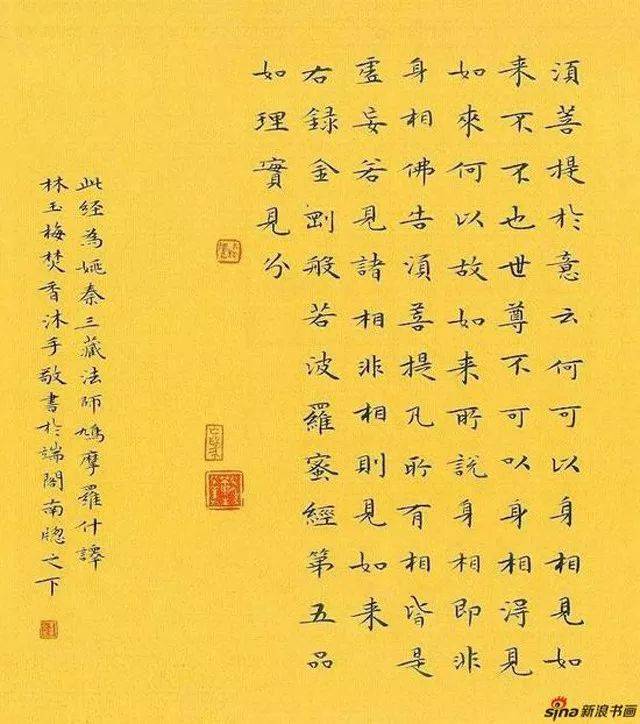 須菩提於意云何可以身相見如
来不不也世尊不可以身相得見
如來何以故如来所說身相即非
身相佛告須菩提凡所有相皆是
虛妄若見諸相非相則見如来
右録金剛般若波羅蜜經第五品
如理實見分
此経為姚秦三藏法師鳩摩羅什譯
林玉梅焚香沐手敬書於端閣南牕之下
sina新浪书画